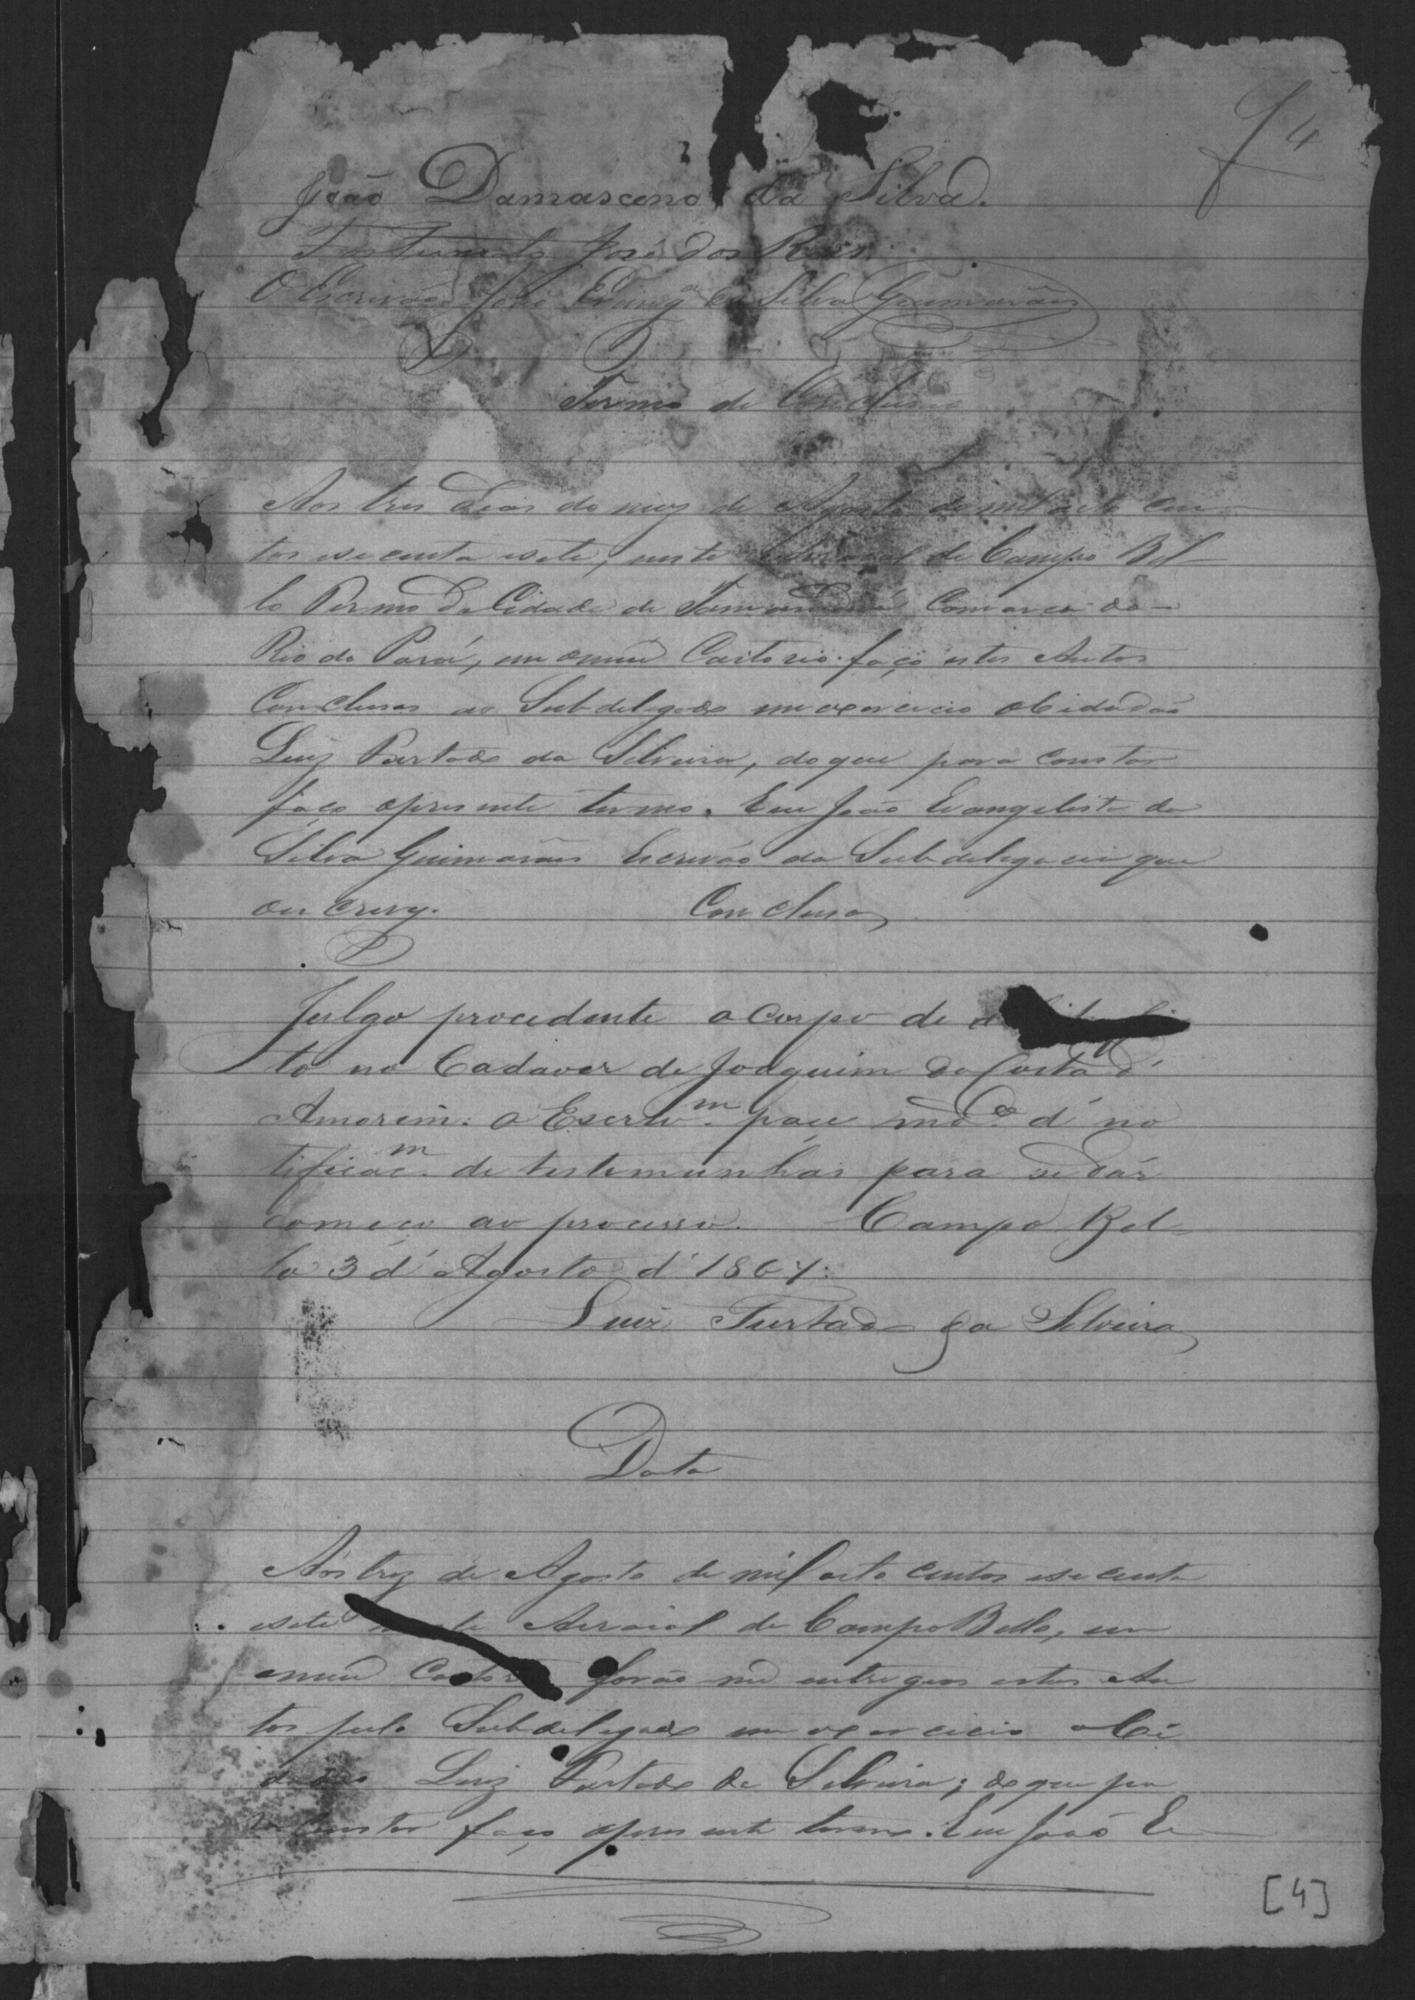 4
João Damasceno da Silva.
José dos Reis
O Escrivão João Evangª da Silva Guimarães
Termo de Conclusão
Aos tres dias do mez de Agosto de mil oito cen
tos esecenta esete, neste Arraial de Campo Bel
lo Termo da Cidade de Tamanduá Comarca do
Rio do Pará, em o meu Cartorio faço estes Autos
Conclusos ao Subdelegado em exercicio o Cidadão
Luiz Furtado da Silveira, do que para constar
faço o presente termo. Eu João Evangelista da
Silva Guimarães Escrivão da Subdelegacia que
o escrevy. Conclusos
Julgo procedente o corpo de
to no Cadaver de Joaquim da Costa d'
Amorim: o Escrivm. pace mdo d' no
tificacm. de testemunhas para se dár
começo ao processo. Campo Bel
lo 3 d' Agosto d' 1867:
Luiz Furtado da Silveira
Data
Aos trez de Agosto de mil oito centos esecenta
esete neste Arraial de Campo Bello, em
o meu Cartorio forão me entregues estes Au
tos pelo Subdelegado em exercicio o Ci
dadão Luiz Furtado da Silveira; do que pa
ra constar faço o presente termo. Eu João E
[4]